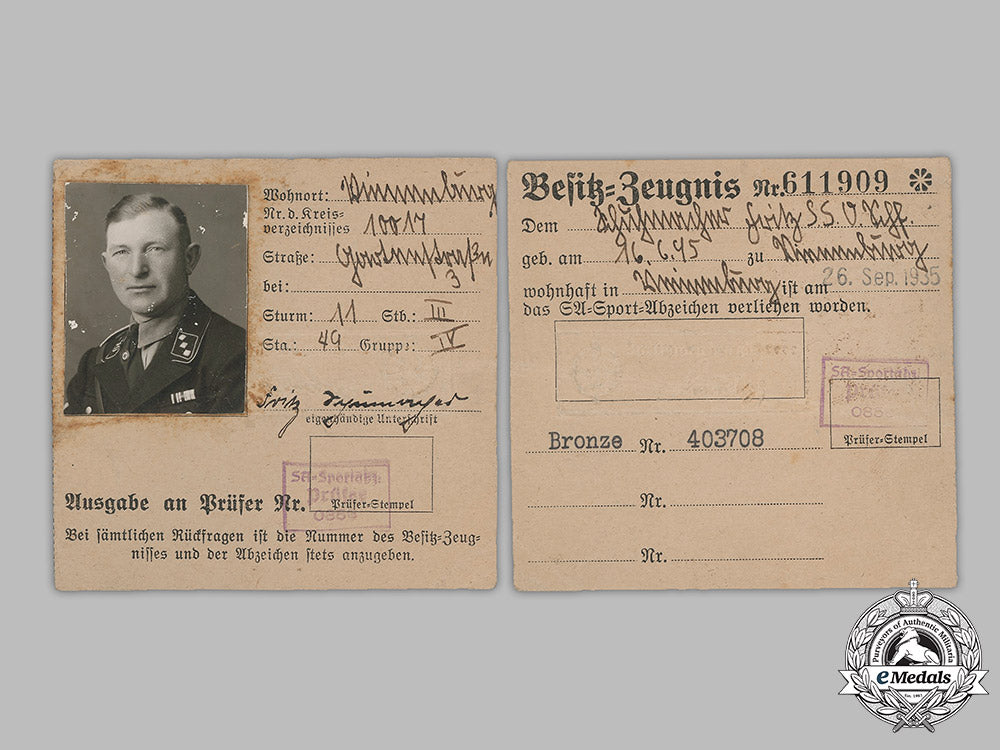 Wohnort: Vienenburg
Nr. d. Kreis-
verzeichnisses 10017
Straße: Gartenstraße
bei: 3
Sturm: 11 Stb.: III
Sta.: 49 Gruppe: IV
Fritz Schumacher
eigenhändige Unterschrift
SA-Sportabz.
Prüfer
Ausgabe an Prüfer Nr.
Prüfer-Stempel
Bei sämtlichen Rückfragen ist die Nummer des Besitz-Zeug-
nisses und der Abzeichen stets anzugeben.
Besitz-Zeugnis Nr. 611909
Dem Fritz S.S.
geb. am 16.6. zu Vienenburg
wohnhaft in Vienenburg ist am 26. Sep. 1935
das SA-Sport-Abzeichen verliehen worden.
SA-Sportabz.
Prüfer
Prüfer-Stempel
Bronze Nr. 403708
Nr.
Nr.
Purveyors of Authentic Militaria
eMedals